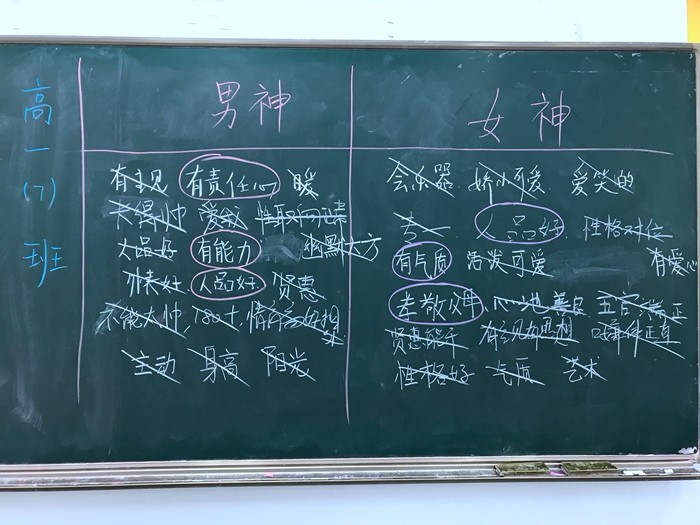 高一(7)班
男神
有主见 有责任心 暖
长得帅 爱笑 性取向正常
人品好 有能力 幽默大方
有能力
人品好 贤惠
不能太帅, 180+,
主动 身高 阳光
女神
会乐器 娇小可爱 爱笑的
人品好 性格对位
有气质 活泼可爱 有爱心
孝敬父母 心地善良 五官端正
贤惠能干 有主见有思想
性格好 气质 艺术